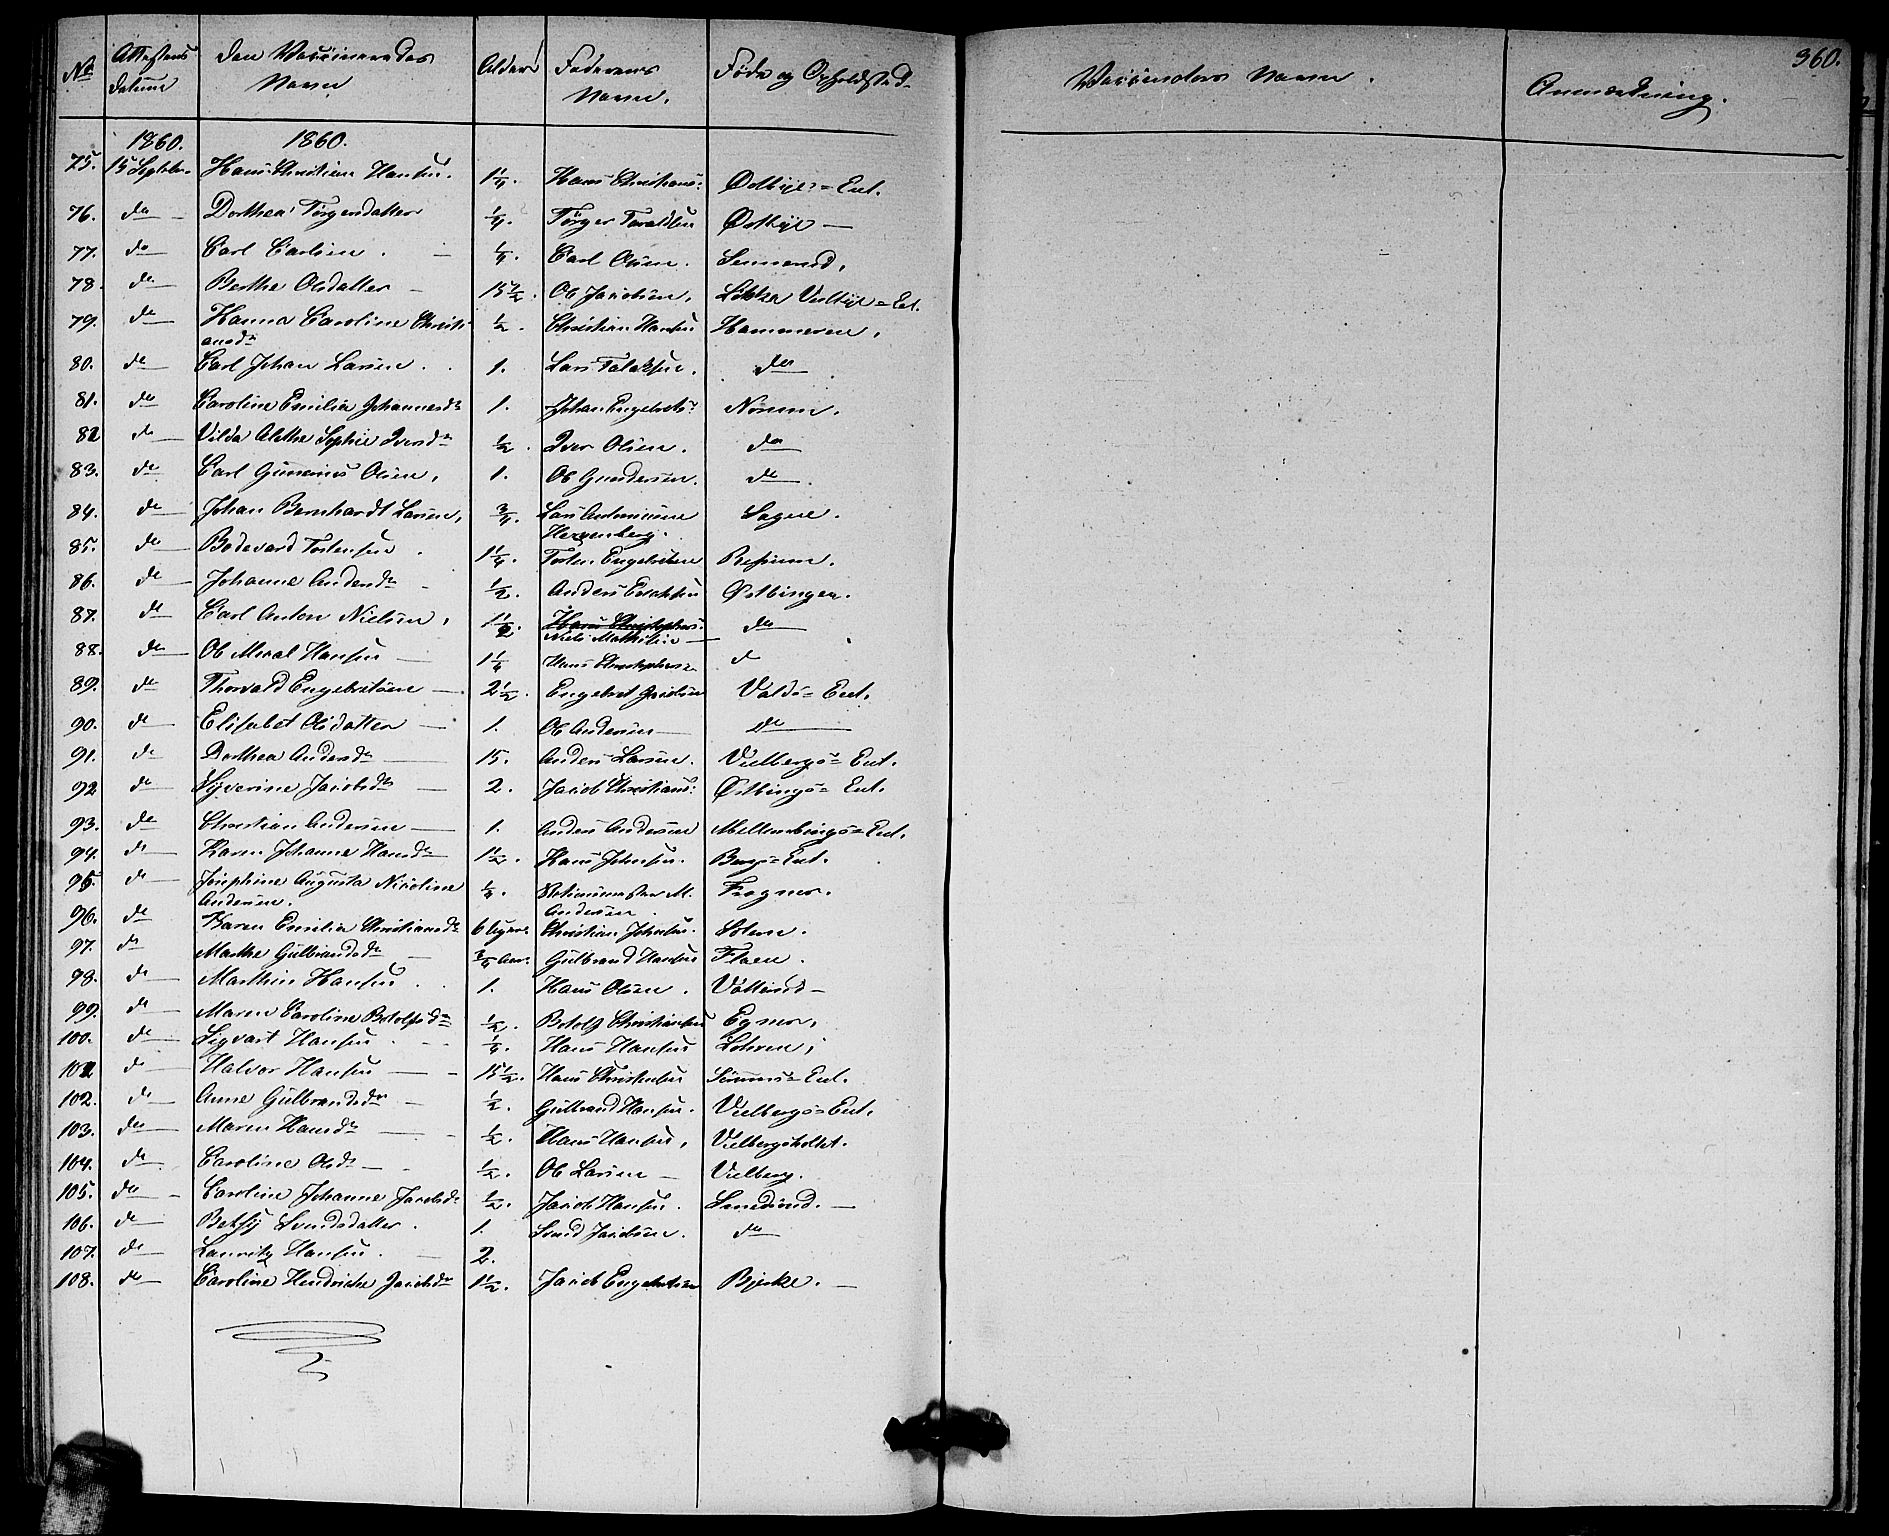 360.
No Attestens Datum Den Vaccineredes Navn Alder Faderens Navn. Føde og Opholdsted. Vaccineteurs Navn. Anmærkning.
1860. 1860.
75. 15 Septbr. Hans Christian Hansen. 1 1/4. Hans Christians: Østbye = Eiet.
76. do Dorthea Törgersdatter 1/4. Törger Taraldsen Østbye —
77. do Carl Carlsen. 1/4. Carl Olsen. Sennerud.
78. do Berthe Olsdatter 15 1/2. Ole Jacobsen. Løkka Vestbye = Eet.
79. do Hanna Caroline Christi- 1/2. Christian Hansen Hammeren.
ansdr
80. do Carl Johan Larsen. 1. Lars Falaksen. do
81. do Caroline Emilie Johannesdr 1. Johan Engebrets: Noreim.
82 do Vilda Alethe Sophie Iversdr 1/2. Iver Olsen. do
83. do Carl Gunerius Olsen. 1. Ole Gundersen. do
84. do Johan Bernhardt Larsen. 3/4. Lars Antonisen Sagen.
Herrenberg.
85. do Bodevard Tostensen. 1 1/4. Tosten Engebretsen
86. do Johanne Andersdr 1/2. Anders Eriksen Østbingen.
87. do Carl Anton Nielsen. 1 1/2. Hans Christophers: do
Niels Mathisen
88. do Ole Meral Hansen — 1 1/4 Hans Christophersen do
89. do Thorvald Engebretsen — 2 1/2. Engebret Jacobsen Valdø = Eiet.
90. do Elisabet Olsdatter — 1. Ole Andersen — do
91. do Dorthea Andersdr 15. Anders Larsen. Vielbergs = Eiet.
92 do Syverine Jacobsdr 2. Jacob Christians: Østbings = Eiet.
93. do Christian Andersen — 1. Anders Andersen Mellembings = Eiet.
94. do Karen Johanne Hansdr 1 1/2. Hans Johnsen. Bergs = Eiet.
95. do Josephine Augusta Nicoline 1/4. Stationsmester M. Frogner.
Andersen. Andersen.
96. do Karen Emilie Christiansdr 6 Uger. Christian Johnsen. Solem.
97. do Marthe Gulbrandsdr 3/4 Aar. Gulbrand Hansen Flaen.
98. do Marthin Hansen. 1. Hans Olsen. Vøllund —
99. do Maren Caroline Botolfsdr 1/2. Botolf Christiansen Egner.
100. do Sigvart Hansen 1/4. Hans Hansen Lohren.
101 do Halvor Hansen — 15 1/2. Hans Christensen = Eiet.
102. do Anne Gulbrandsdr 1/2. Gulbrand Hansen. Vielbergs = Eiet.
103. do Maren Hansdr 1/2. Hans Hansen. Vielbergsholtet.
104. do Caroline Olsdr — 1/2. Ole Larsen — Vielberg.
105. do Caroline Johanne Jacobsdr 1/2. Jacob Hansen.
106. do Betsy Svendsdatter. 1. Svend Jacobsen. do
107. do Lauritz Hansen. 2.
108. do Caroline Hendrikke Jacobsdr 1 1/2. Jacob Engebretsen Bjerke. —